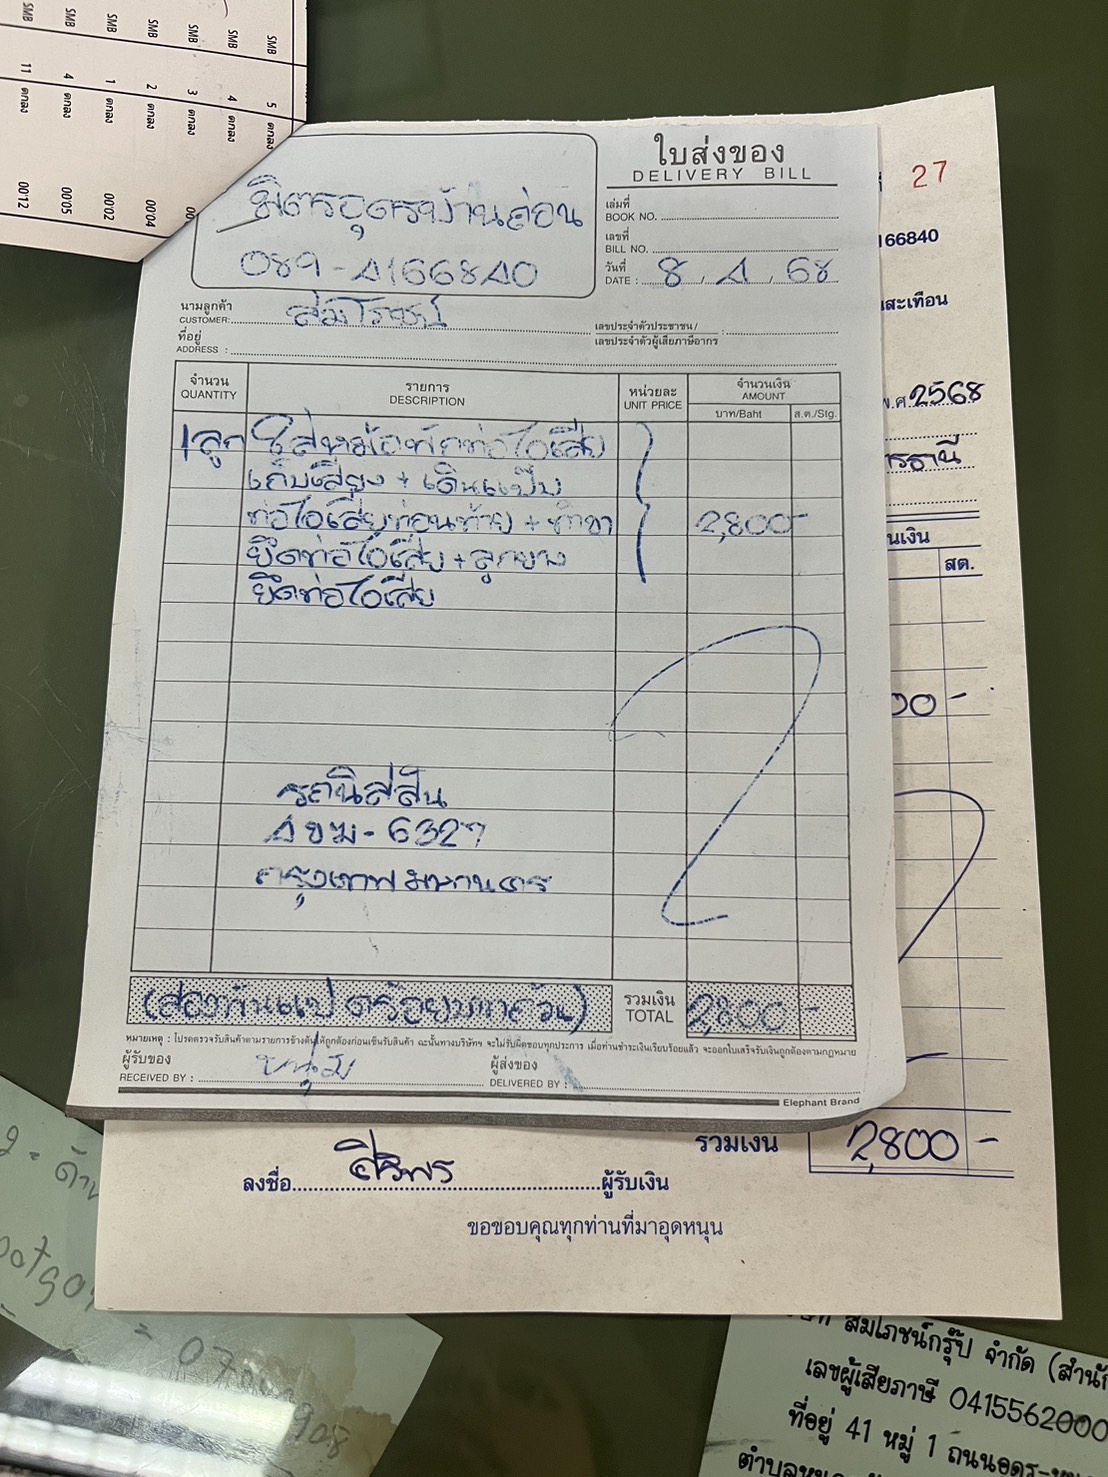 SMB 11 ตกลง 00:12
SMB 4 ตกลง 00:05
SMB 1 ตกลง 00:02
SMB 2 ตกลง 00:04
SMB 3 ตกลง
SMB 4 ตกลง
SMB 5 ตกลง
ใบส่งของ
DELIVERY BILL
มิตรอุดรบ้านถ่อน
089-4166840
เล่มที่
BOOK NO.
เลขที่
BILL NO.
วันที่
DATE : 8 , 4 , 68
นามลูกค้า
CUSTOMER: สมโภชน์
ที่อยู่
ADDRESS :
เลขประจำตัวประชาชน/
เลขประจำตัวผู้เสียภาษีอากร :
จำนวน QUANTITY
รายการ DESCRIPTION
หน่วยละ UNIT PRICE
จำนวนเงิน AMOUNT
บาท/Baht ส.ต./Stg.
1 ลูก ใส่หม้อพักท่อไอเสีย
เก็บเสียง + เดินแป๊บ
ท่อไอเสียท่อนท้าย + ทำขา 2,800-
ยึดท่อไอเสีย + ลูกยาง
ยึดท่อไอเสีย
รถนิสสัน
4ขฆ-6327
กรุงเทพมหานคร
(สองพันแปดร้อยบาทถ้วน)
รวมเงิน TOTAL 2,800-
หมายเหตุ : โปรดตรวจรับสินค้าตามรายการข้างต้นให้ถูกต้องก่อนเซ็นรับสินค้า ฉะนั้นทางบริษัทฯ จะไม่รับผิดชอบทุกประการ เมื่อท่านชำระเงินเรียบร้อยแล้ว จะออกใบเสร็จรับเงินถูกต้องตามกฎหมาย
ผู้รับของ
RECEIVED BY : หนุ่ม
ผู้ส่งของ
DELIVERED BY :
Elephant Brand
ที่ 27
166840
สะเทือน
พ.ศ. 2568
รธานี
นเงิน
สต.
00 -
รวมเงิน 2,800 -
ลงชื่อ ศิริพร ผู้รับเงิน
ขอขอบคุณทุกท่านที่มาอุดหนุน
สมโภชน์กรุ๊ป จำกัด (สำนัก
เลขผู้เสียภาษี 0415562000
ที่อยู่ 41 หมู่ 1 ถนนอุดร-